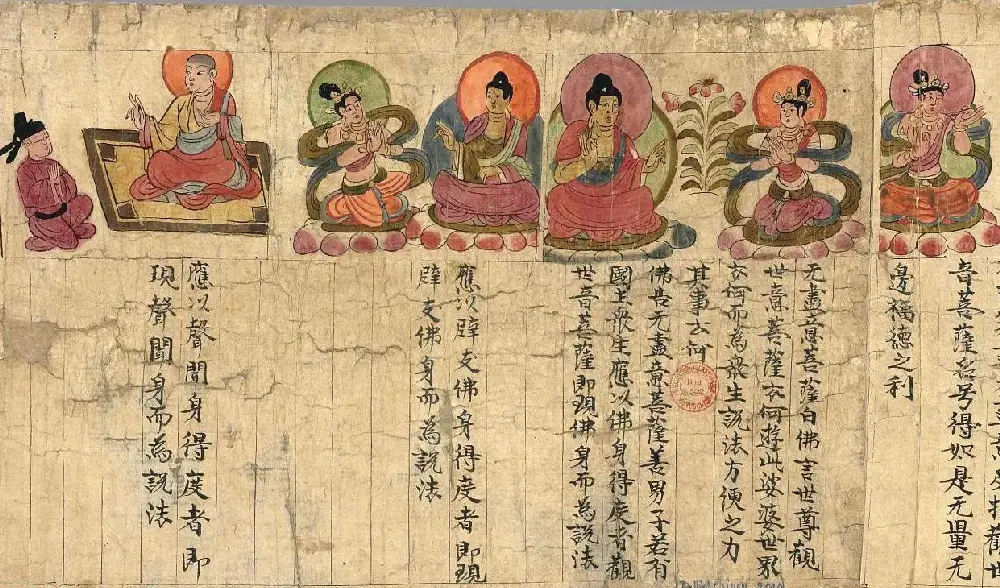 音菩薩名号得如是无量无
邊福德之利
无盡意菩薩白佛言世尊觀
世音菩薩云何遊此娑婆世界
云何而為眾生說法方便之力
其事云何
佛告无盡意菩薩善男子若有
國土眾生應以佛身得度者觀
世音菩薩即現佛身而為說法
應以辟支佛身得度者即現
辟支佛身而為說法
應以聲聞身得度者即
現聲聞身而為說法